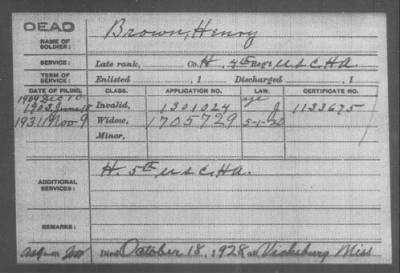 DEAD
NAME OF SOLDIER: Brown, Henry
SERVICE: Late rank, Co. H. 4th Reg't U S C H A
TERM OF SERVICE: Enlisted , 1 Discharged , 1
DATE OF FILING. CLASS. APPLICATION NO. LAW. CERTIFICATE NO.
1904 Dec 10 age
1903 Invalid, 1301024 J 1133675
1931 Nov 9 Widow, 1705729 5-1-20
Minor,
ADDITIONAL SERVICES: H. 5th U S C H A.
REMARKS:
Died October 18, 1928 at Vicksburg Miss